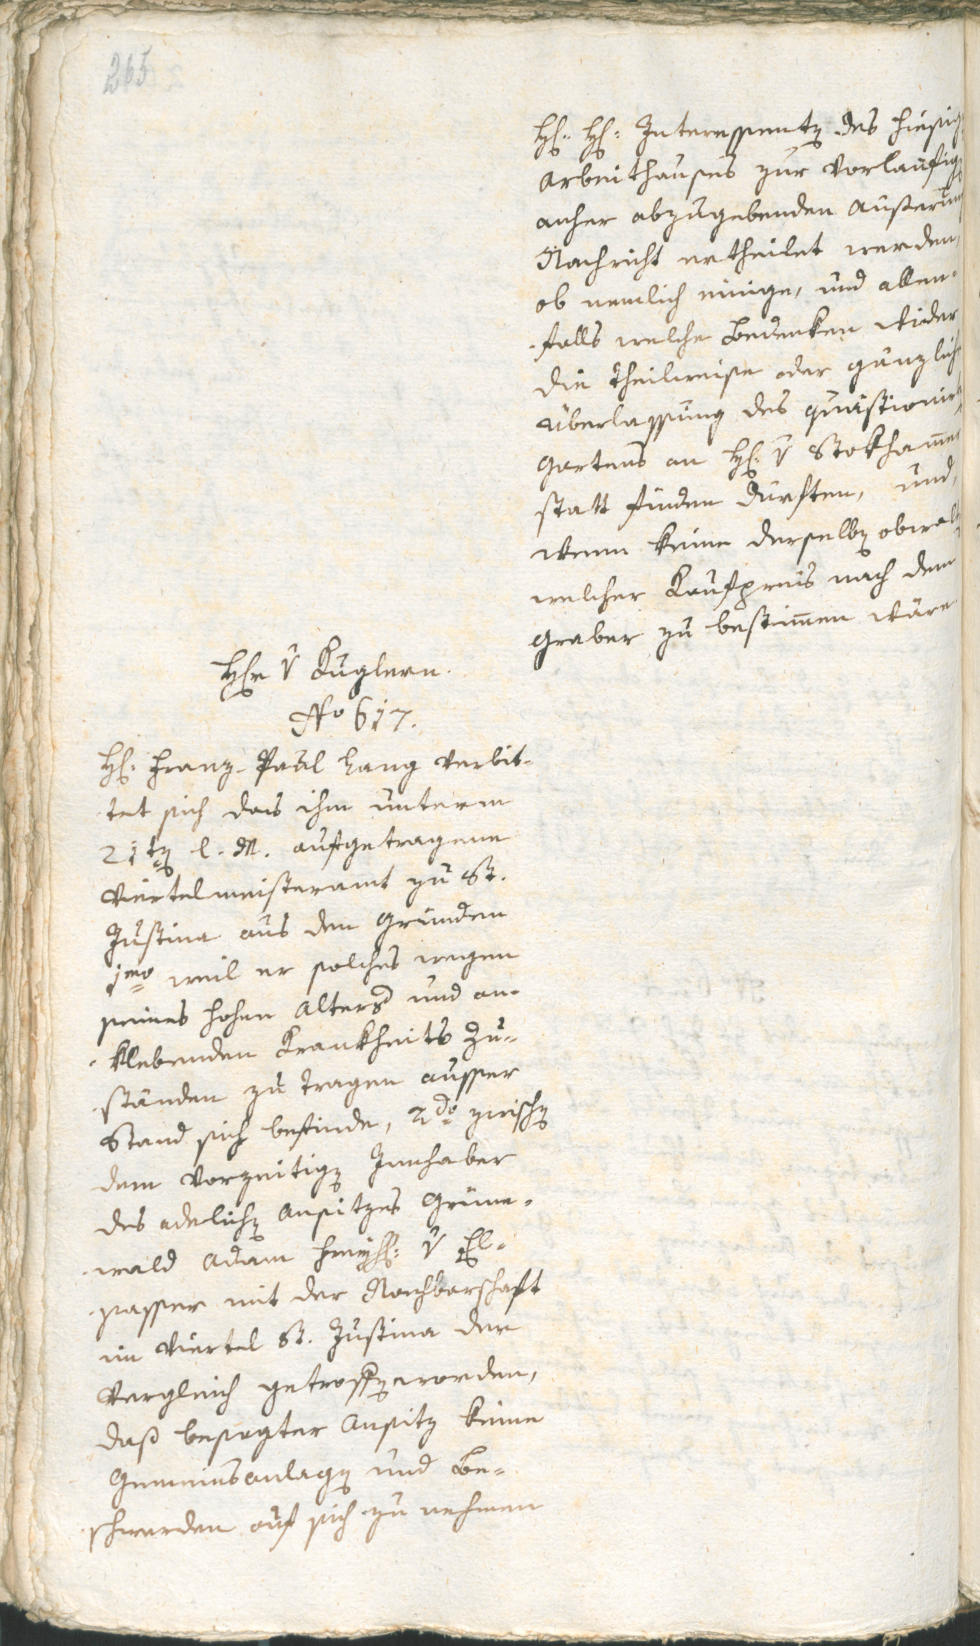 265
H: H: Interessentẽ des hiesig
Arbeithauses zur vorläufig
anher abzugebenden Äußerung
Nachricht ertheilet werden,
ob nemlich einige, und allen-
falls welche Bedenken wider
die theilweise oder gänzliche
Überlassung des quästionir
Gartens an H: v Stokham̄er
statt finden dürften, und,
wenn keine derselbẽ obwal
welcher Kaufpreis nach dem
Graber zu bestim̄en wäre
Hr v Kuglern.
No 617.
H: Franz Paul Lang verbit-
tet sich das ihm unterm
21tẽ l. M. aufgetragene
Viertelmeisteramt zu St.
Justina aus den Gründen
1mo weil er solches wegen
seines hohen Alters und an-
klebenden Krankheits Zu-
ständen zu tragen ausser
Stand sich befinde, 2do zwischẽ
dem vorzeitigẽ Innhaber
des adelichẽ Ansitzes Grüne-
wald Adam Freyh: v El-
sasser mit der Nachbarschaft
im Viertel St. Justina der
Vergleich getroffẽ worden,
daß besagter Ansitz keine
Gemeinsanlagẽ und Be-
schwerden auf sich zu nehmen